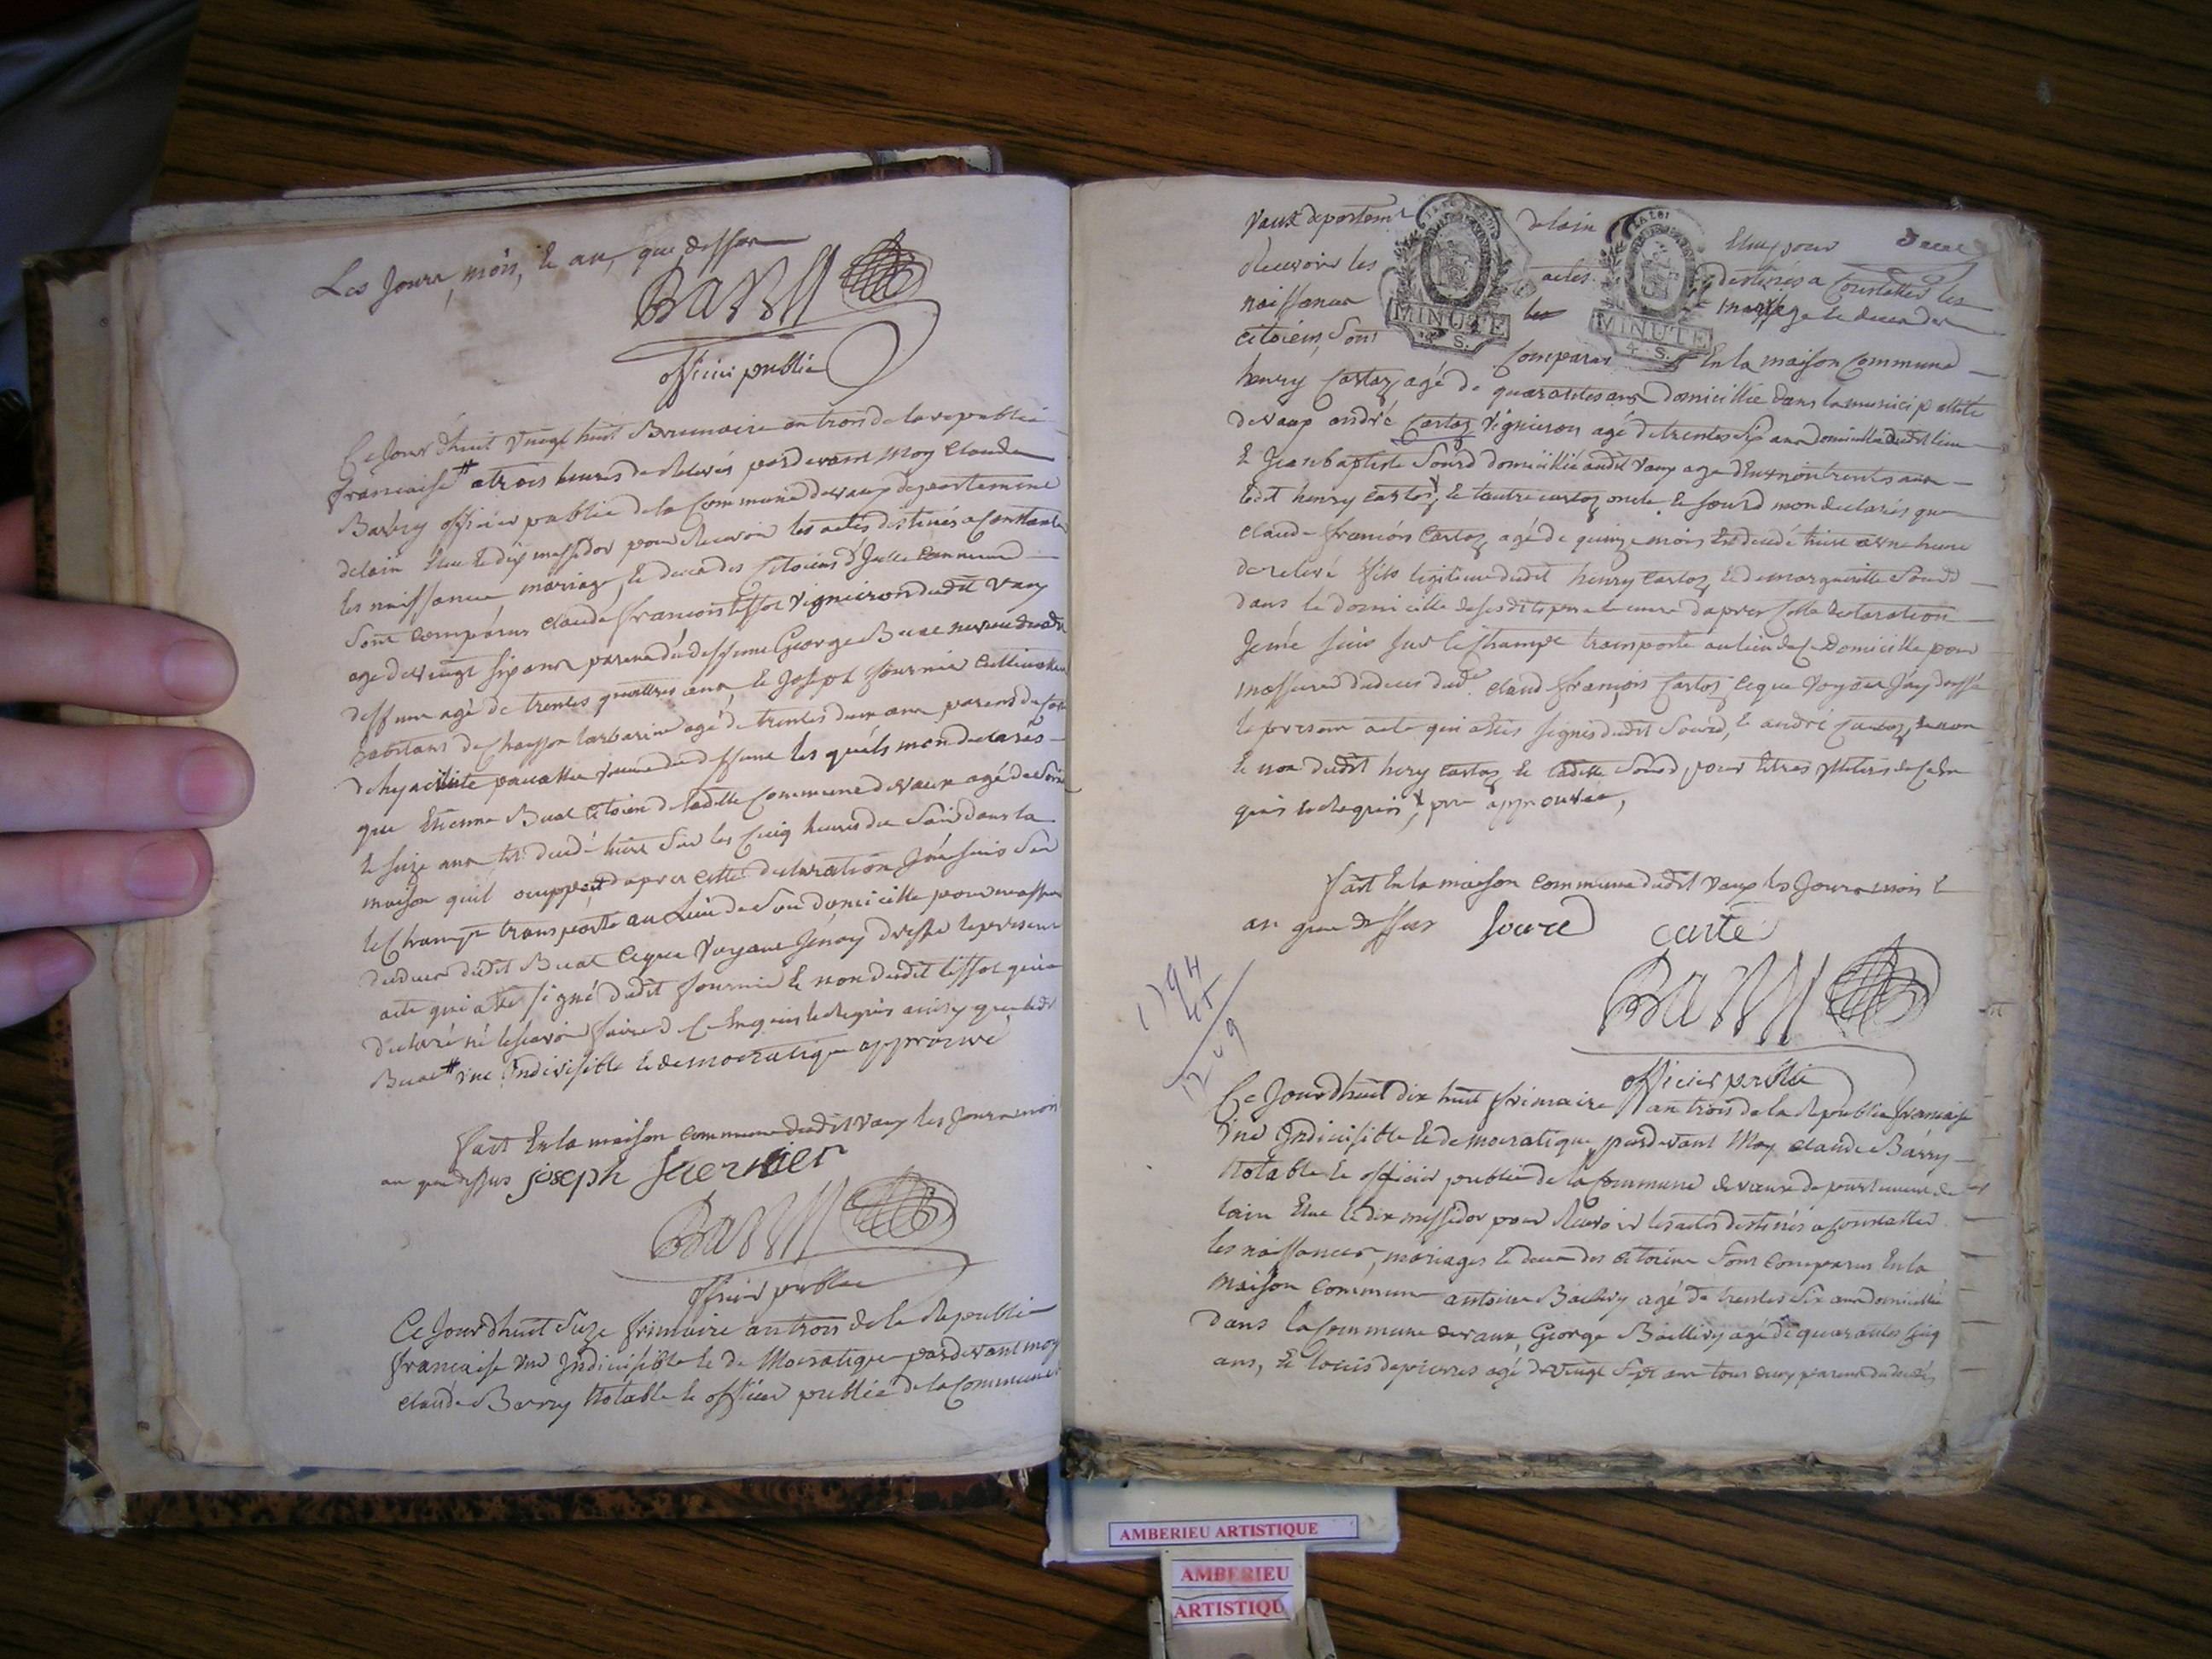 Les Jours, mois, & an, que dessus
Barry
officier public
Ce Jourdhuit vingt huit Brumaire an trois de la republic
francaise # a trois heures de Relevés pardevant Moy Claude
Barry officier public de la Commune devaux departement
delain Elue le dix messidor pour Recevoir les actes destinés a Constater
les naissance mariage, & deces des Citoiens d'Jcelle Commune
Sont comparus Claude francois tissot vigneron dudit Vaux
age devingt six ans parent du deffunt George Buat neveu dudit
deffunt agé de trentes quattres ans, & Joseph fournier Cultivateur
habitant de Chausson agé de trentes deux ans parent
veuve du deffunt les quels mon declarés
que Etienne Buat Citoien de ladite Commune devaux agé de Soix
& seize ans est decedé hier Sur les Cinq heures du Soir dans la
maison quil occuppoit, dapres cette declaration Je me suis Sur
le Champt transporté au Lieu de Son domicille pour massurer
dudeces dudit Buat Ceque Voyant Jenay dressé le present
acte qui a été signé dudit fournier & non dudit tissot qui a
declaré ne le scavoir faire de ce Enquis & Requis
Buat # une Indivisible & democratique approuvé
fait En la maison commune dudit Vaux les Jours mois
an que dessus joseph fuernier
Barry
officier public
Ce Jourdhuit Seize frimaire an trois de la Republic
francaise une Indivisible & de Mocratique pardevant moy
Claude Barry Notable & officier public de la Commune
Vaux departemt delain Elue pour
Recevoir les actes destinés a Constatter les
naissance les mariage & deces des
citoiens, Sont Comparus En la maison Commune
MINUTE
4. S.
MINUTE
4. S.
henry Cartoz agé de quarantes ans Domicillié dans la municipallité
devaux andré Cartoz Vigneron agé de trentes six ans domicillié dudit lieu
& Jeanbaptiste Sourd domicillié audit Vaux age d'Environ trentes ans
ledit henry Cartoz, & lautre cartoz oncle & Sourd mon declarés que
claude francois Cartoz agé de quinze mois Est decedé hier a une heure
de relevé fils legitime dudit henry Cartoz & de marguerite Sourd
dans le domicille de ses dits pere & mere dapres Cette declaration
Je me suis sur le Champt transporté au lieu de Ce Domicille pour
massurer dudeces dudt. claud francois Cartoz Ceque Voyant Jay dressé
le present acte qui a étés signés dudit Sourd, & andré Cartoz,
& non dudit hery Cartoz
quis & Requis, approuvée,
fait En la maison commune dudit Vaux les Jours mois &
an que dessus Sourd carte
Barry
officier public
1794
Ce Jourdhuit dix huit frimaire an trois de la Republic francaise
une Indivisible & democratique, pardevant Moy claude Barry
Notable & officier public de la Commune devaux departement de
lain Elue le dix messidor pour Recevoir les actes destinés a Constatter
les naissances, mariages & deces des citoiens Sont comparus En la
maison Commune antoine Baillivy agé de trentes six ans domicillié
dans la Commune devaux, George Baillivy agé de quarantes Cinq
ans, & Louis depierres agé de vingt Sept ans tous deux parent du decedés
AMBERIEU ARTISTIQUE
AMBERIEU
ARTISTIQU